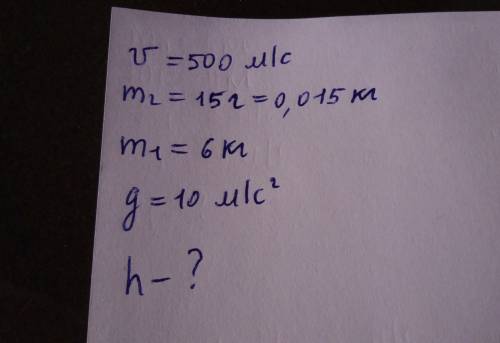 v = 500 м/с
m₂ = 15 г = 0,015 кг
m₁ = 6 кг
g = 10 м/с²
h – ?